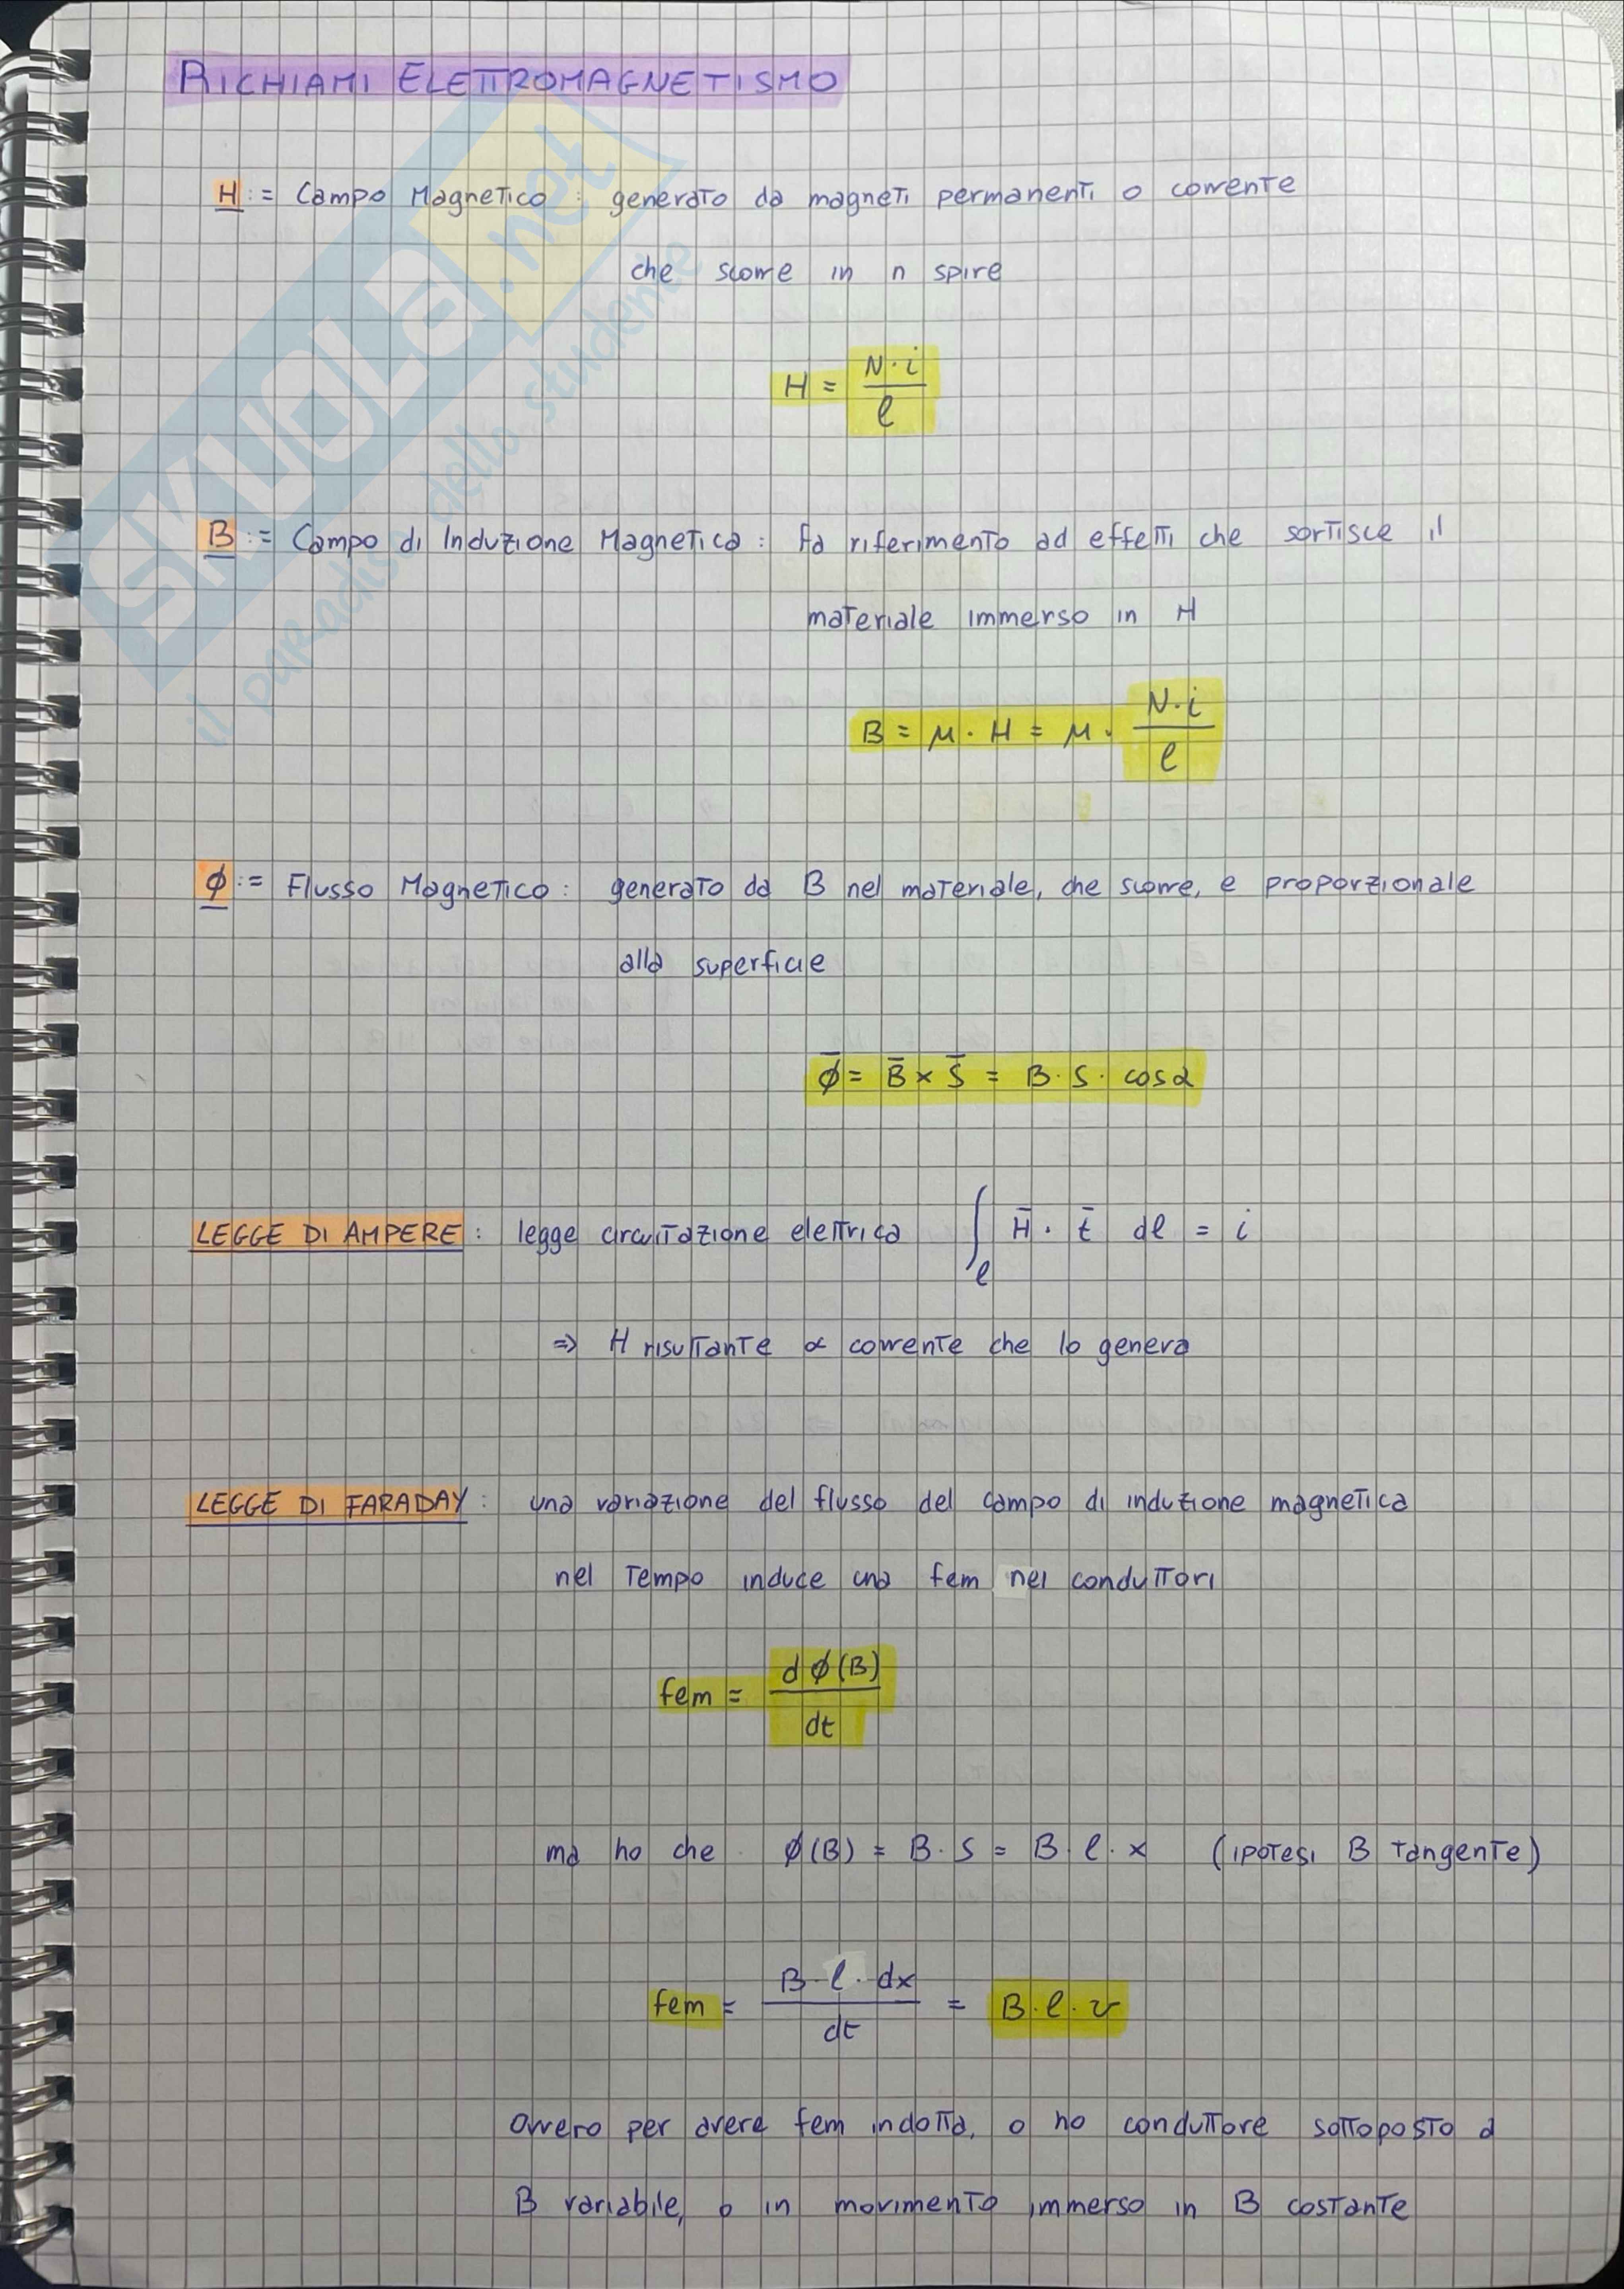 RICHIAMI ELETTROMAGNETISMO
H := Campo Magnetico : generato da magneti permanenti o corrente
che scorre in n spire
H = N·i / l
B := Campo di Induzione Magnetica : fa riferimento ad effetti che sortisce il
materiale immerso in H
B = μ · H = μ · N·i / l
ϕ := Flusso Magnetico : generato da B nel materiale, che scorre, e proporzionale
alla superficie
ϕ̄ = B̄ × S̄ = B · S · cosα
LEGGE DI AMPERE : legge circuitazione elettrica ∫ₗ H̄ · t̄ dl = i
⇒ H risultante ∝ corrente che lo genera
LEGGE DI FARADAY : una variazione del flusso del campo di induzione magnetica
nel tempo induce una fem nei conduttori
fem = dϕ(B) / dt
ma ho che ϕ(B) = B · S = B · l · x (ipotesi B tangente)
fem = B · l · dx / dt = B · l · v
ovvero per avere fem indotta, o ho conduttore sottoposto a
B variabile, o in movimento immerso in B costante
SKUOLA.net
il paradiso dello studente